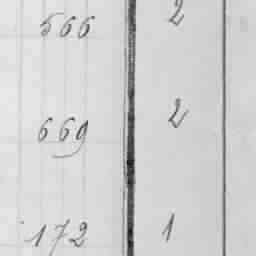 566 2
669 2
172 1